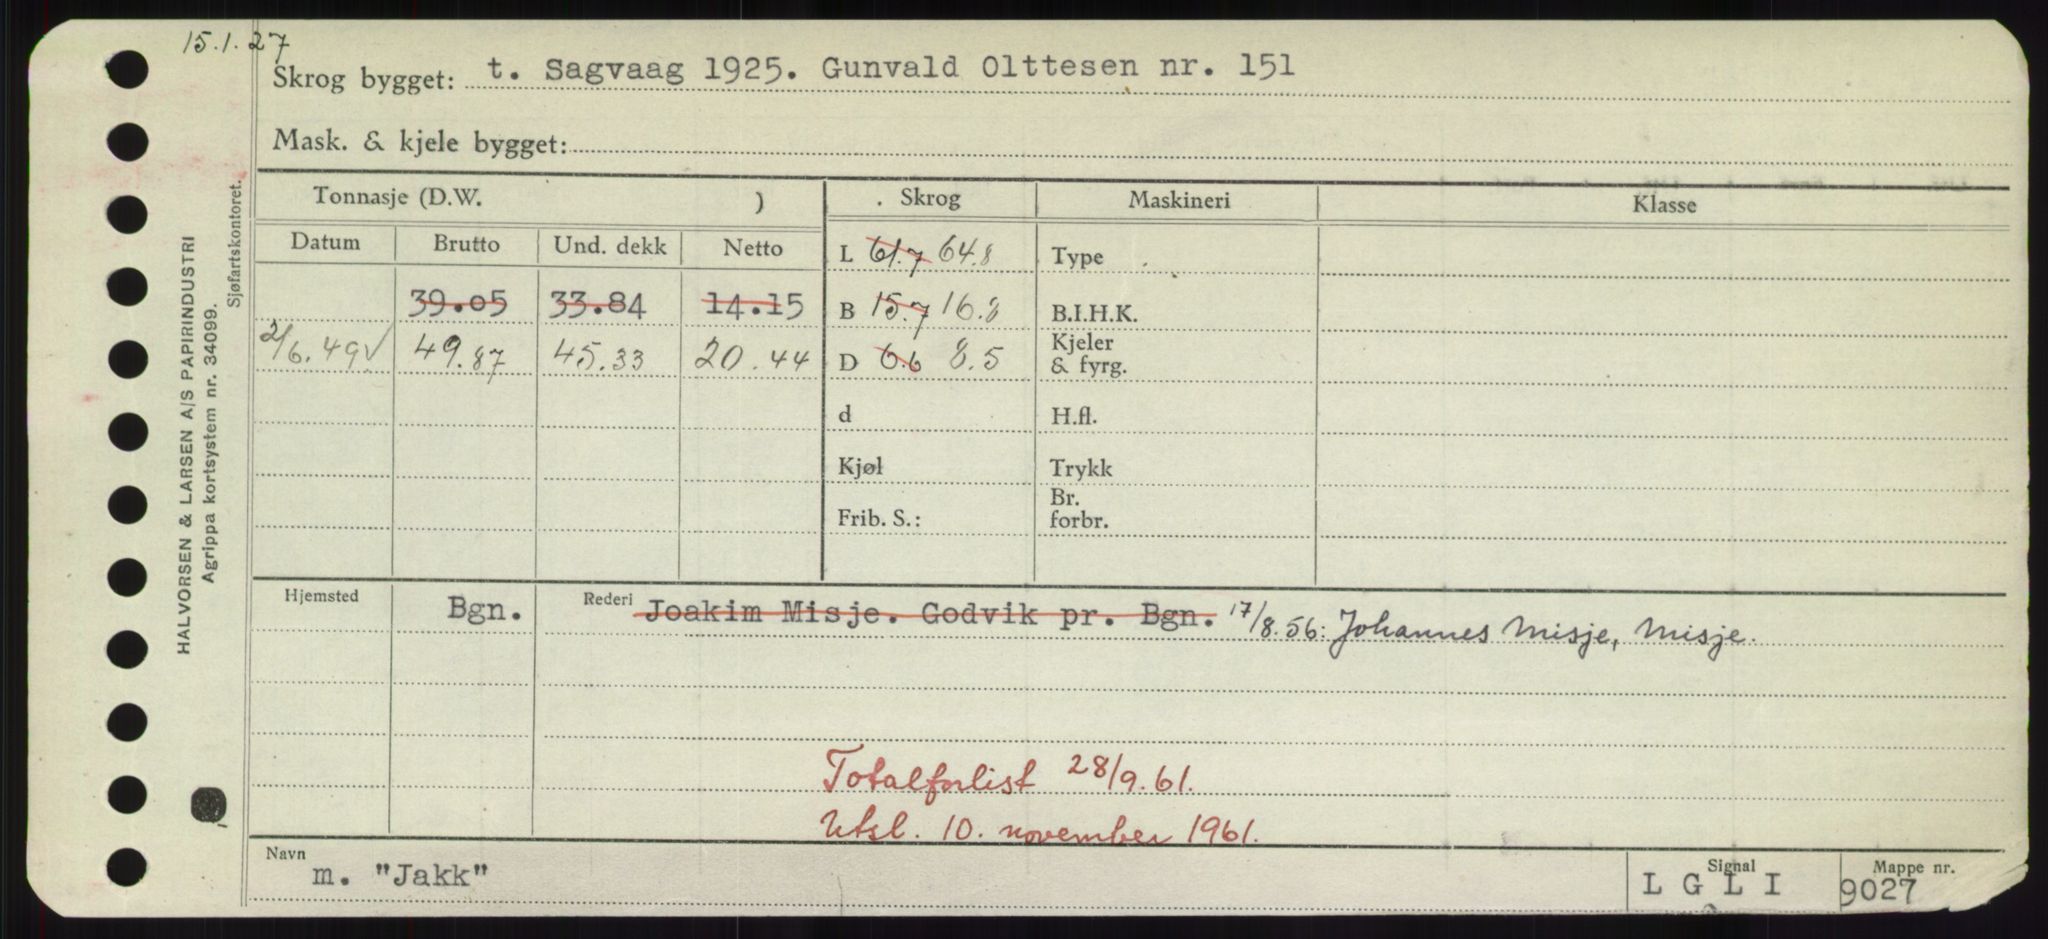 15.1.27
Skrog bygget: t. Sagvaag 1925. Gunvald Olttesen nr. 151
Mask. & kjele bygget:
Tonnasje (D.W. ) Skrog Maskineri Klasse
Datum Brutto Und. dekk Netto L 61.7 64.8 Type
39.05 33.84 14.15 B 15.7 16.8 B.I.H.K.
2/6.49 √ 49.87 45.33 20.44 D 6.6 8.5 Kjeler & fyrg.
d H.fl.
Kjøl Trykk
Frib. S.: Br. forbr.
Hjemsted Bgn. Rederi Joakim Misje. Godvik pr. Bgn. 17/8.56: Johannes Misje, Misje.
Totalforlist 28/9.61.
Utsl. 10. november 1961.
Navn m. "Jakk" Signal L G L I Mappe nr. 9027
HALVORSEN & LARSEN A/S PAPIRINDUSTRI
Agrippa kortsystem nr. 34099.
Sjøfartskontoret.